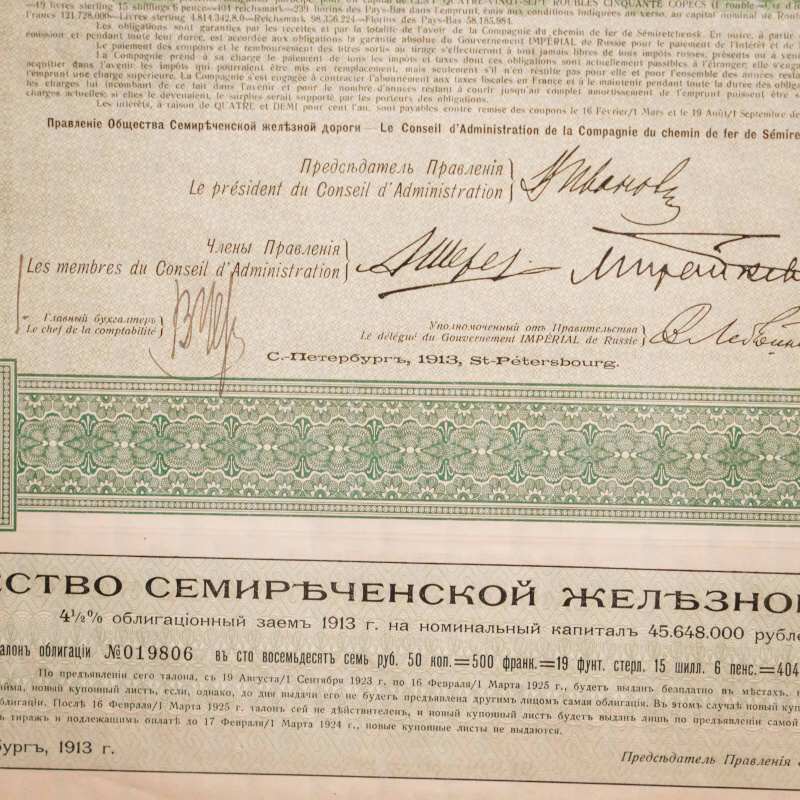 19 livres sterling 15 shillings 6 pence=404 reichsmark=239 florins des Pays-Bas dans l'emprunt, émis aux conditions indiquées au verso, au capital nominal de
Francs 121.728.000—Livres sterling 4.814.342.8.0—Reichsmark 98.356.224—Florins des Pays-Bas 58.185.984.
Les obligations sont garanties par les recettes et par la totalité de l'avoir de la Compagnie du chemin de fer de Sémiretchensk. En outre, à partir
émission et pendant toute leur durée, est accordée aux obligations la garantie absolue du Gouvernement IMPÉRIAL de Russie pour le paiement de l'intérêt et de
Le paiement des coupons et le remboursement des titres sortis au tirage s'effectueront à tout jamais libres de tous impôts russes, présents ou à
La Compagnie prend à sa charge le paiement de tous les impôts et taxes dont ces obligations sont actuellement passibles à l'étranger; elle
acquitter dans l'avenir les impôts qui pourraient être mis en remplacement, mais seulement s'il n'en résulte pas pour elle et pour l'ensemble des années
l'emprunt une charge supérieure. La Compagnie s'est engagée à contracter l'abonnement aux taxes fiscales en France et à le maintenir pendant toute la durée des
les charges lui incombant de ce fait dans l'avenir et pour le nombre d'années restant à courir jusqu'au complet amortissement de l'emprunt puissent être
charges actuelles; si elles le devenaient, le surplus serait supporté par les porteurs des obligations.
Les intérêts, à raison de QUATRE et DEMI pour cent l'an, sont payables contre remise des coupons le 16 Février/1 Mars et le 19 Août/1 Septembre de
Правленіе Общества Семирѣченской желѣзной дороги — Le Conseil d'Administration de la Compagnie du chemin de fer de
Предсѣдатель Правленія
Le président du Conseil d'Administration
Иванов
Члены Правленія
Les membres du Conseil d'Administration
Главный бухгалтеръ
Le chef de la comptabilité
Уполномоченный отъ Правительства
Le délégué du Gouvernement IMPÉRIAL de Russie
С.-Петербургъ, 1913, St-Pétersbourg.
СТВО СЕМИРѢЧЕНСКОЙ ЖЕЛѢЗНО
4½% облигаціонный заемъ 1913 г. на номинальный капиталъ 45.648.000
алонъ облигаціи №019806 въ сто восемьдесятъ семь руб. 50 коп.=500 франк.=19 фунт. стерл. 15 шилл. 6 пенс.=404
По предъявленіи сего талона, съ 19 Августа/1 Сентября 1923 г. по 16 Февраля/1 Марта 1925 г., будетъ выданъ безплатно въ мѣстахъ,
йма, новый купонный листъ, если, однако, до дня выдачи его не будетъ предъявлена другимъ лицомъ самая облигація. Въ этомъ случаѣ новый
блигаціи. Послѣ 16 Февраля/1 Марта 1925 г. талонъ сей не дѣйствителенъ, и новый купонный листъ будетъ выданъ лишь по предъявленіи самой
ъ тиражъ и подлежащимъ оплатѣ до 17 Февраля/1 Марта 1924 г., новые купонные листы не выдаются.
бургъ, 1913 г.
Предсѣдатель Правленія